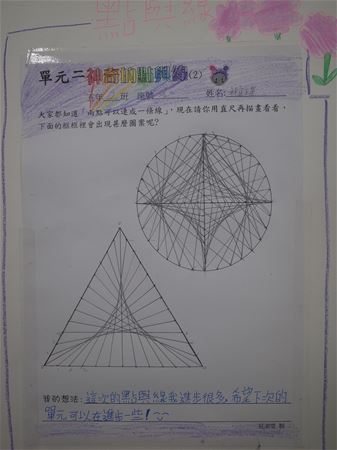 點與線
單元二神奇的點與線(2)
年 班 座號 姓名:
大家都知道「兩點可以連成一條線」,現在請你用直尺再描畫看看,
下面的框框裡會出現甚麼圖案呢?
我的想法:這次的點與線我進步很多,希望下次的
單元可以在進步一些!